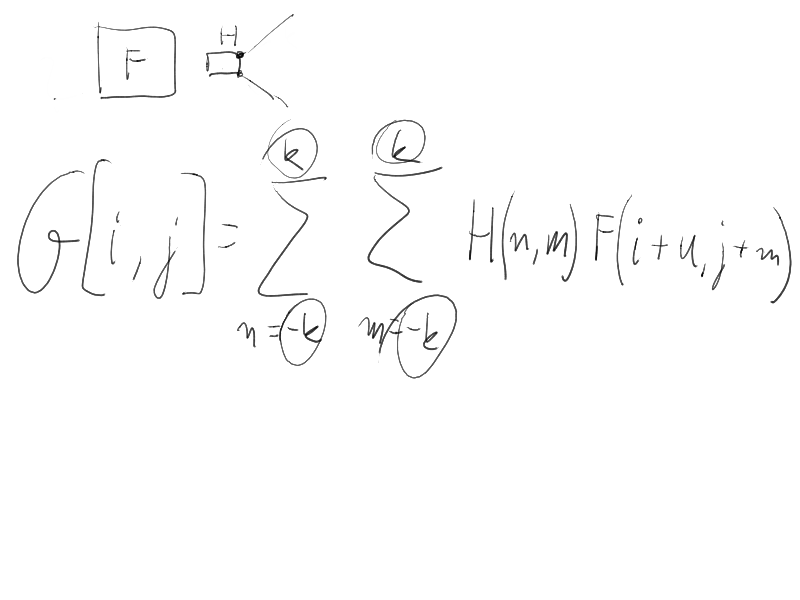 F H
G[i,j] = ∑_{n=-k}^{k} ∑_{m=-k}^{k} H(n,m) F(i+u,j+m)